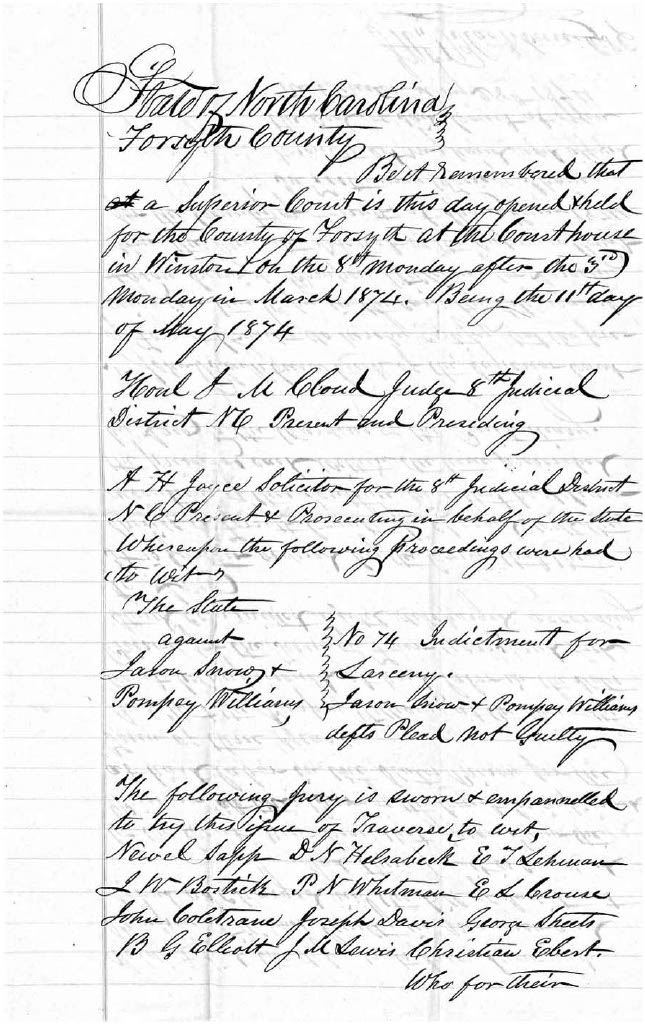 State of North Carolina
Forsyth County
Be it remembered that
at a Superior Court is this day opened & held
for the County of Forsyth at the Court house
in Winston on the 8th Monday after the 3rd
Monday in March 1874. Being the 11th day
of May 1874
Honl J M Cloud Judge 8th Judicial
District NC Present and Presiding
A H Joyce Solicitor for the 8th Judicial District
N C Present & Prosecuting in behalf of the State
Whereupon the following proceedings were had
to wit
The State
against
Jason Snow &
Pompey Williams,
No 74 Indictment for
Larceny.
Jason Snow & Pompey Williams
defts Plead not Guilty
The following Jury is sworn & empannelled
to try this issue of Traverse, to wit,
Newel Sapp D N Helsabeck E T Lehman
J W Bostick P N Whitman E L Crouse
John Coletrane Joseph Davis George Sheets
B G Elliott J M Lewis Christian Ebert.
Who for their